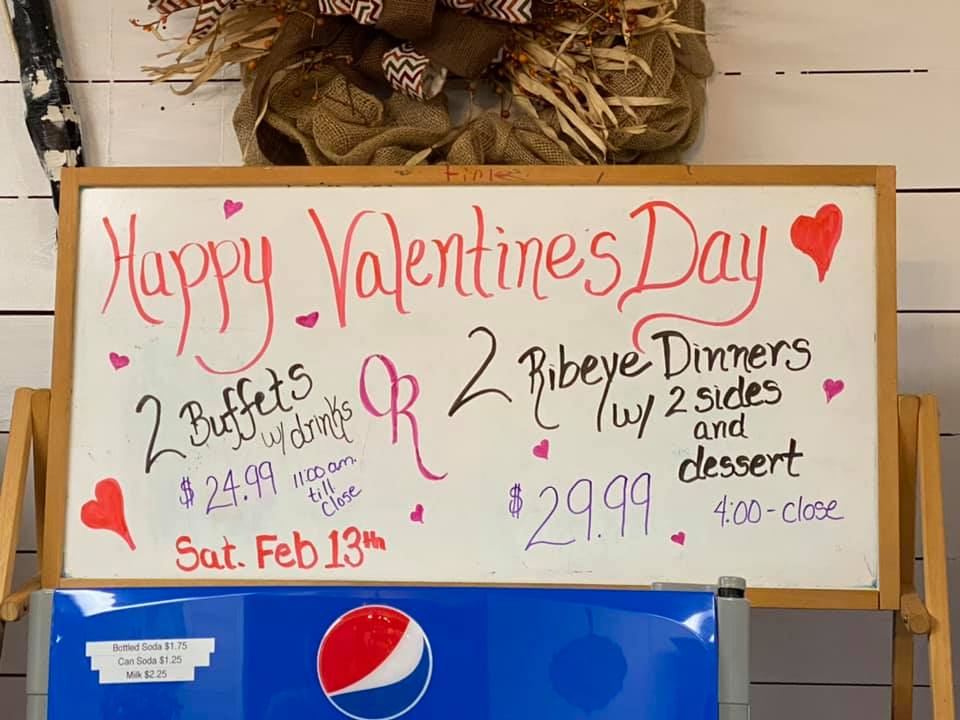 time
Happy Valentines Day
2 Buffets
w/ drinks
$24.99
11:00 am.
till
close
OR
2 Ribeye Dinners
w/ 2 sides
and
dessert
$29.99
4:00 - close
Sat. Feb 13th
Bottled Soda $1.75
Can Soda $1.25
Milk $2.25